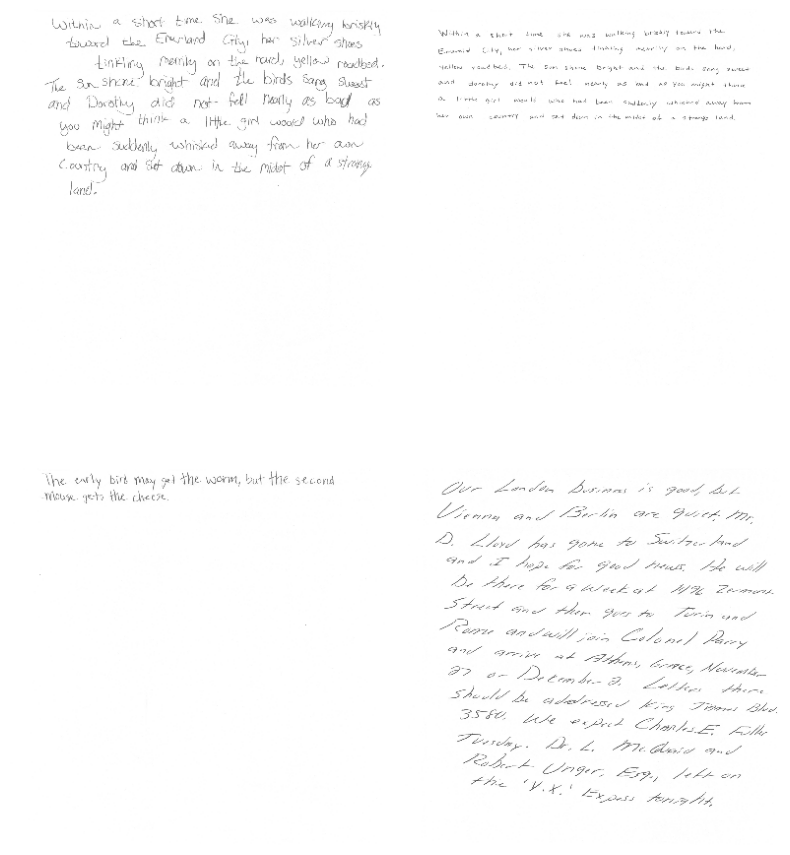 Within a short time she was walking briskly
toward the Emerland City, her silver shoes
tinkling merrily on the hard, yellow roadbed.
The sun shone bright and the birds sang sweet
and Dorothy did not fell nearly as bad as
you might think a little girl would who had
been suddenly whisked away from her own
Country and set down in the midst of a strange
land.
Within a short time she was walking briskly toward the
Emerald City, her silver shoes tinkling merrily on the hard,
yellow roadbed. The sun shone bright and the birds sang sweet
and dorothy did not feel nearly as bad as you might think
a little girl would who had been suddenly whisked away from
her own country and set down in the midst of a strange land.
The early bird may get the worm, but the second
mouse gets the cheese.
Our London business is good, but
Vienna and Berlin are quiet. Mr.
D. Lloyd has gone to Switzerland
and I hope for good news. He will
be there for a week at 1496 Zermott
Street and then goes to Turin and
Rome and will join Colonel Parry
and arrive at Athens, Greece, November
27 or December 2. Letters there
should be addressed King James Blvd.
3580. We expect Charles E. Fuller
Tuesday. Dr. L. McQuaid and
Robert Unger, Esq., left on
the 'Y.X.' Express tonight.